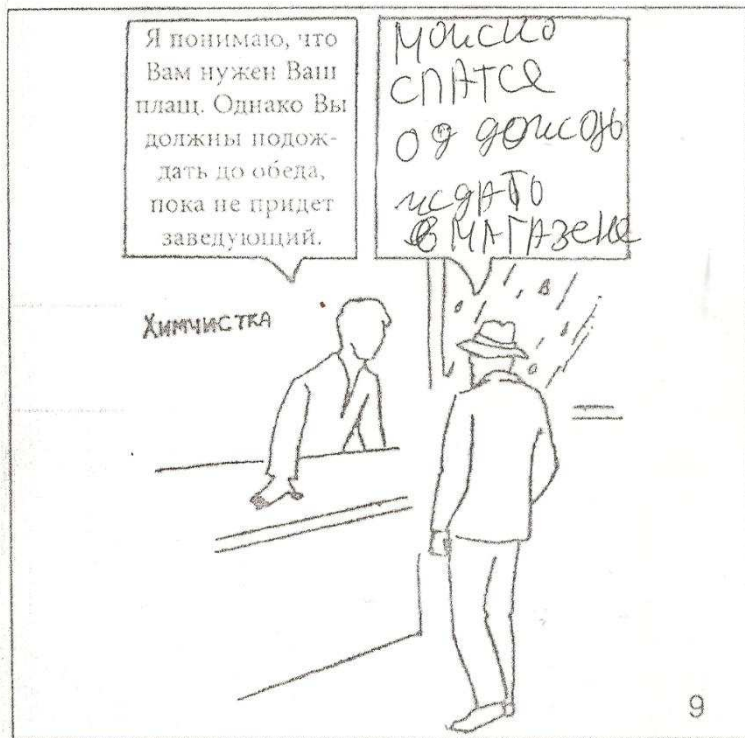 Я понимаю, что
Вам нужен Ваш
плащ. Однако Вы
должны подож-
дать до обеда,
пока не придет
заведующий.
можно
спатсе
од дождь
ждать
в магазене
Химчистка
9